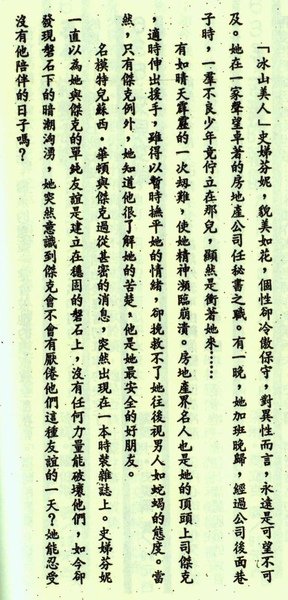 「冰山美人」史娣芬妮，貌美如花，個性卻冷傲保守，對異性而言，永遠是可望不可
及。她在一家聲望卓著的房地產公司任秘書之職。有一晚，她加班晚歸，經過公司後面巷
子時，一羣不良少年竟佇立在那兒，顯然是衝著她來……
有如晴天霹靂的一次刼難，使她精神瀕臨崩潰。房地產界名人也是她的頂頭上司傑克
，適時伸出援手，雖得以暫時撫平她的情緒，卻挽救不了她往後視男人如蛇蝎的態度。當
然，只有傑克例外，她知道他很了解她的苦楚，他是她最安全的好朋友。
名模特兒蘇西．華頓與傑克過從甚密的消息，突然出現在一本時裝雜誌上。史娣芬妮
一直以為她與傑克的單純友誼是建立在穩固的磐石上，沒有任何力量能破壞他們，如今卻
發現磐石下的暗潮洶湧，她突然意識到傑克會不會有厭倦他們這種友誼的一天？她能忍受
沒有他陪伴的日子嗎？